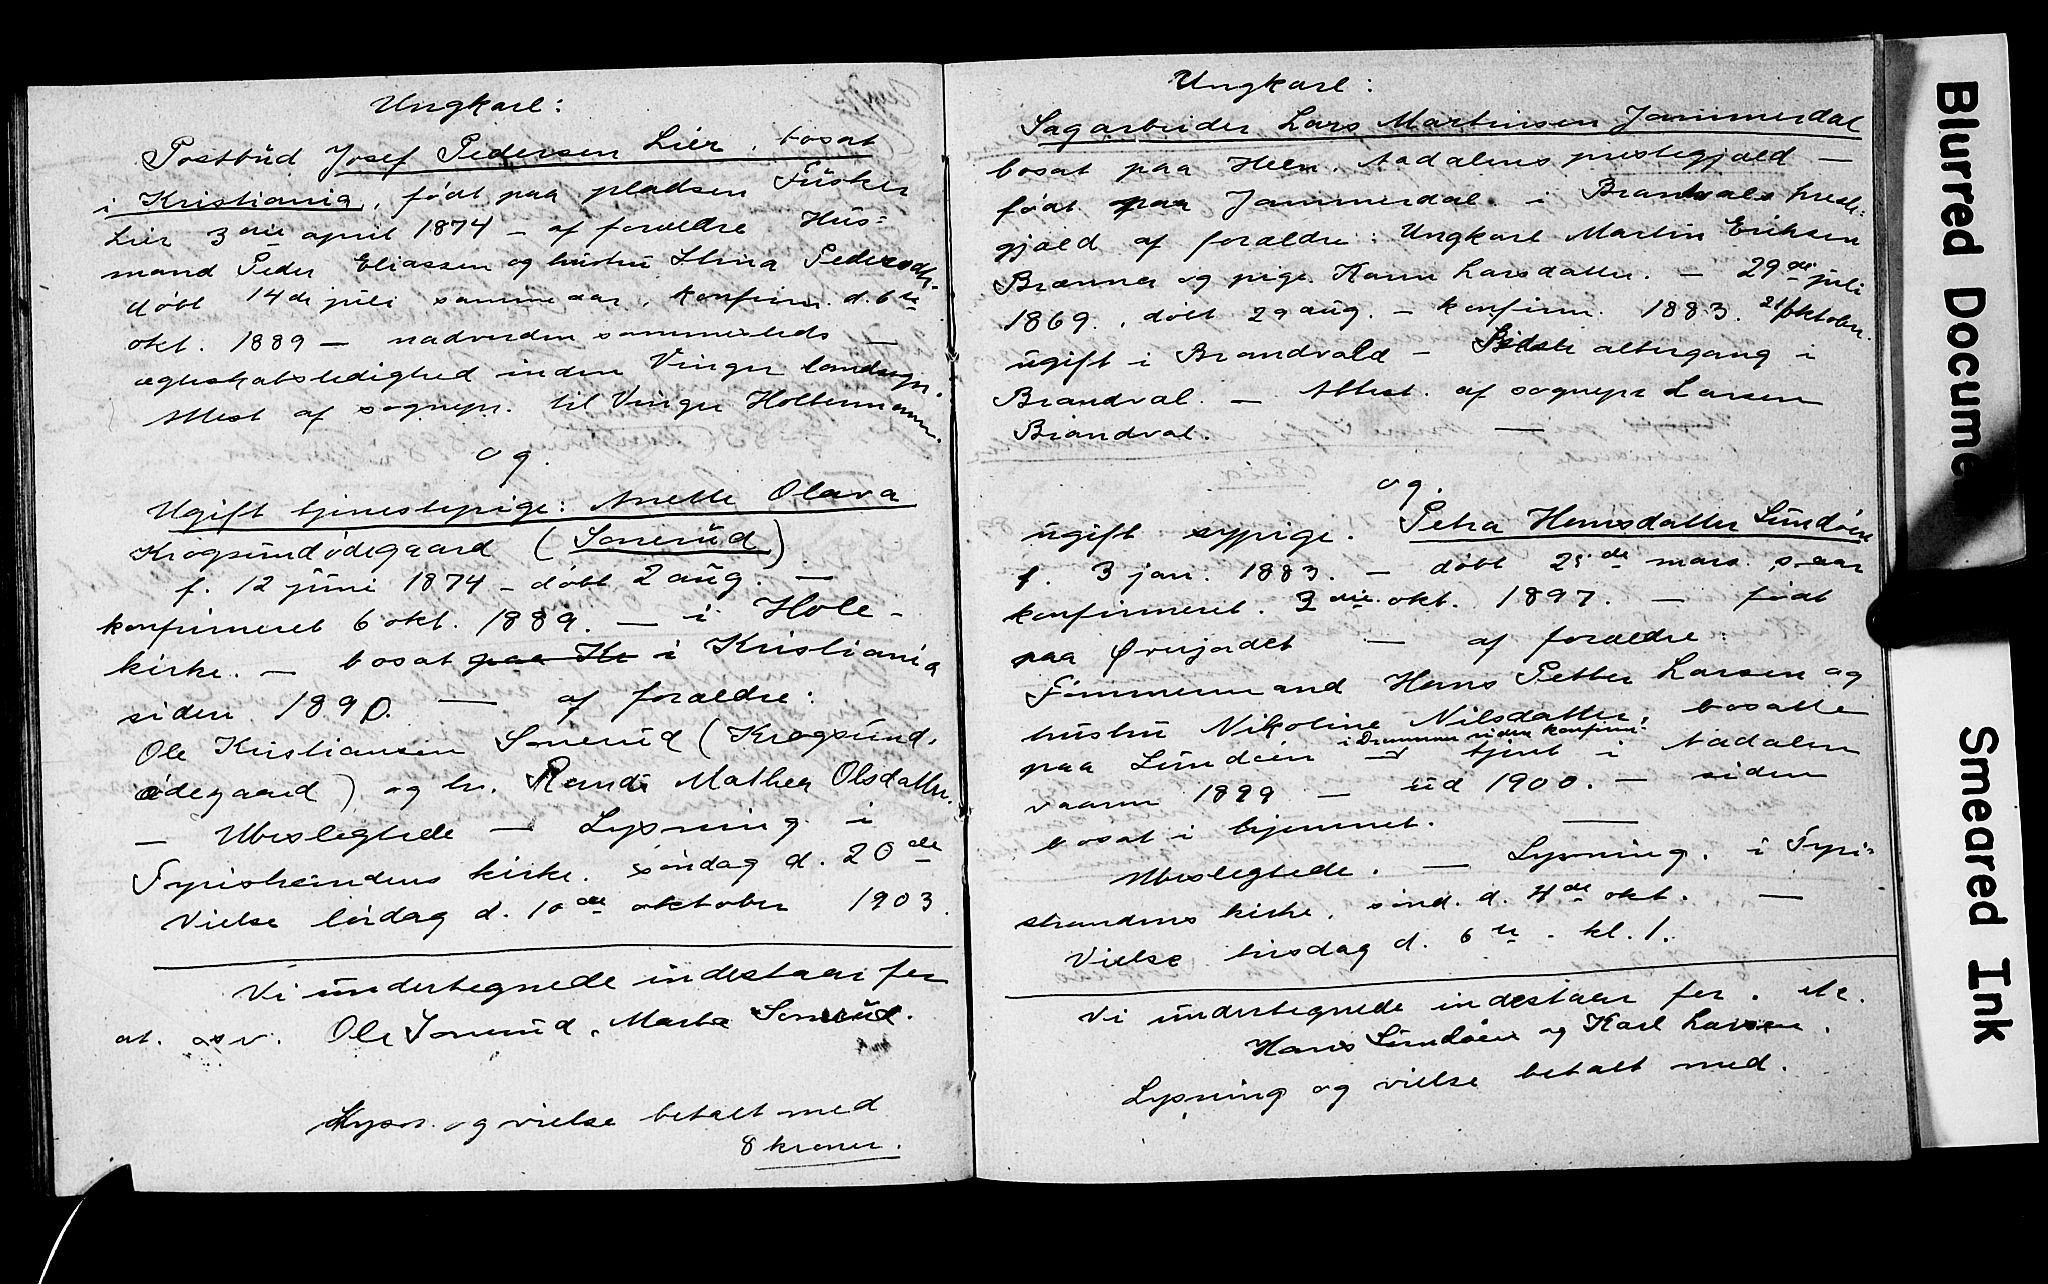 Ungkarl:
Postbud Josef Pedersen Lier, bosat
i Kristiania, født paa pladsen
Lier 3die april 1874 – af forældre Hus=
mand Peder Eliassen og hustru Stina Pedersdtr.
døbt 14de juli samme aar. konfirm. d. 6te
okt. 1889 – nadverden sammesteds –
ægteskabsledighed inden Vinger landsogn.
Attest af sognepr. til Vinger Holtermann.
og.
Ugift tjenestepige: Anette Olava
Krogsundødegaard (Sonerud)
f. 12 juni 1874 – døbt 2 aug. –
konfirmeret 6 okt. 1889. – i Hole –
kirke. – bosat paa i Kristiania
siden 1890. – af forældre:
Ole Kristiansen Sonerud (Krogsund,
ødegaard) og h. Randi Mathea Olsdatter.
– Ubeslegtede – Lysning i
Tyristrandens kirke. søndag d. 20de
Vielse lørdag d. 10de oktober 1903.
Vi undertegnede indestaar for
at. osv. Ole Sonerud, Marta Sonerud.
Lysn. og vielse betalt med
8 kroner.
Ungkarl:
Sagarbeider Lars Martinsen Jammerdal
bosat paa Hen. Aadalens prestegjæld –
født paa Jammerdal. i Brandvals preste=
gjæld af forældre: Ungkarl Martin Eriksen
Brænna og pige Karen Larsdatter. – 29de juli
1869., døbt 29 aug. – konfirm. 1883. 21/oktober.
ugift i Brandvold – Sidste altergang i
Brandval. – Attest. af sognepr Larsen
Brandval. –
og.
ugift sypige. Petra Hansdatter Lundøen
f. 3 jan. 1883. – døbt 25de mars s. aar
konfirmeret. 3die okt. 1897. – født
paa Øverjordet – af forældre:
Tømmermand Hans Petter Larsen og
hustru Nikoline Nilsdatter, bosatte
i Drammen siden konfirm.
paa Lundøen – tjent i Aadalen
vaaren 1899 – ud 1900. – siden
bosat i hjemmet. –
Ubeslegtede. – Lysning. i Tyri=
strandens kirke, sønd. d. 4de okt. –
Vielse tirsdag d. 6te. kl. 1.
Vi undertegnede indestaar for. etc.
Hans Lundøen og Karl Larsen.
Lysning og vielse betalt med.
Blurred Docume
Smeared Ink